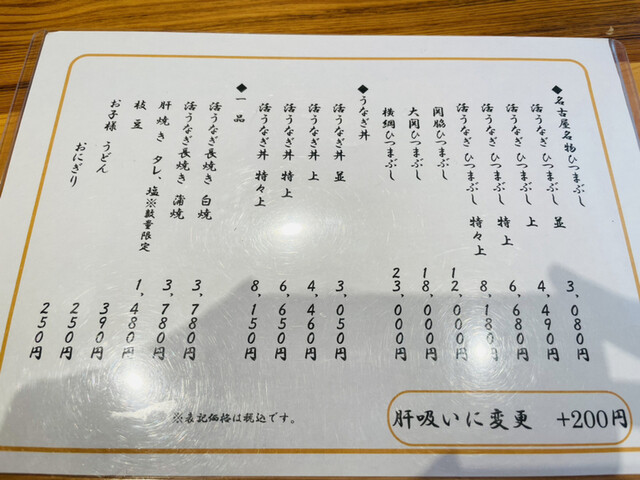 ◆名古屋名物ひつまぶし
活うなぎ ひつまぶし 並 3,080円
活うなぎ ひつまぶし 上 4,490円
活うなぎ ひつまぶし 特上 6,680円
活うなぎ ひつまぶし 特々上 8,180円
関脇ひつまぶし 12,000円
大関ひつまぶし 18,000円
横綱ひつまぶし 23,000円
◆うなぎ丼
活うなぎ丼 並 3,050円
活うなぎ丼 上 4,460円
活うなぎ丼 特上 6,650円
活うなぎ丼 特々上 8,150円
◆一品
活うなぎ長焼き 白焼 3,780円
活うなぎ長焼き 蒲焼 3,780円
肝焼き タレ、塩※数量限定 1,480円
枝豆 390円
お子様 うどん 250円
おにぎり 250円
肝吸いに変更 +200円
※表記価格は税込です。